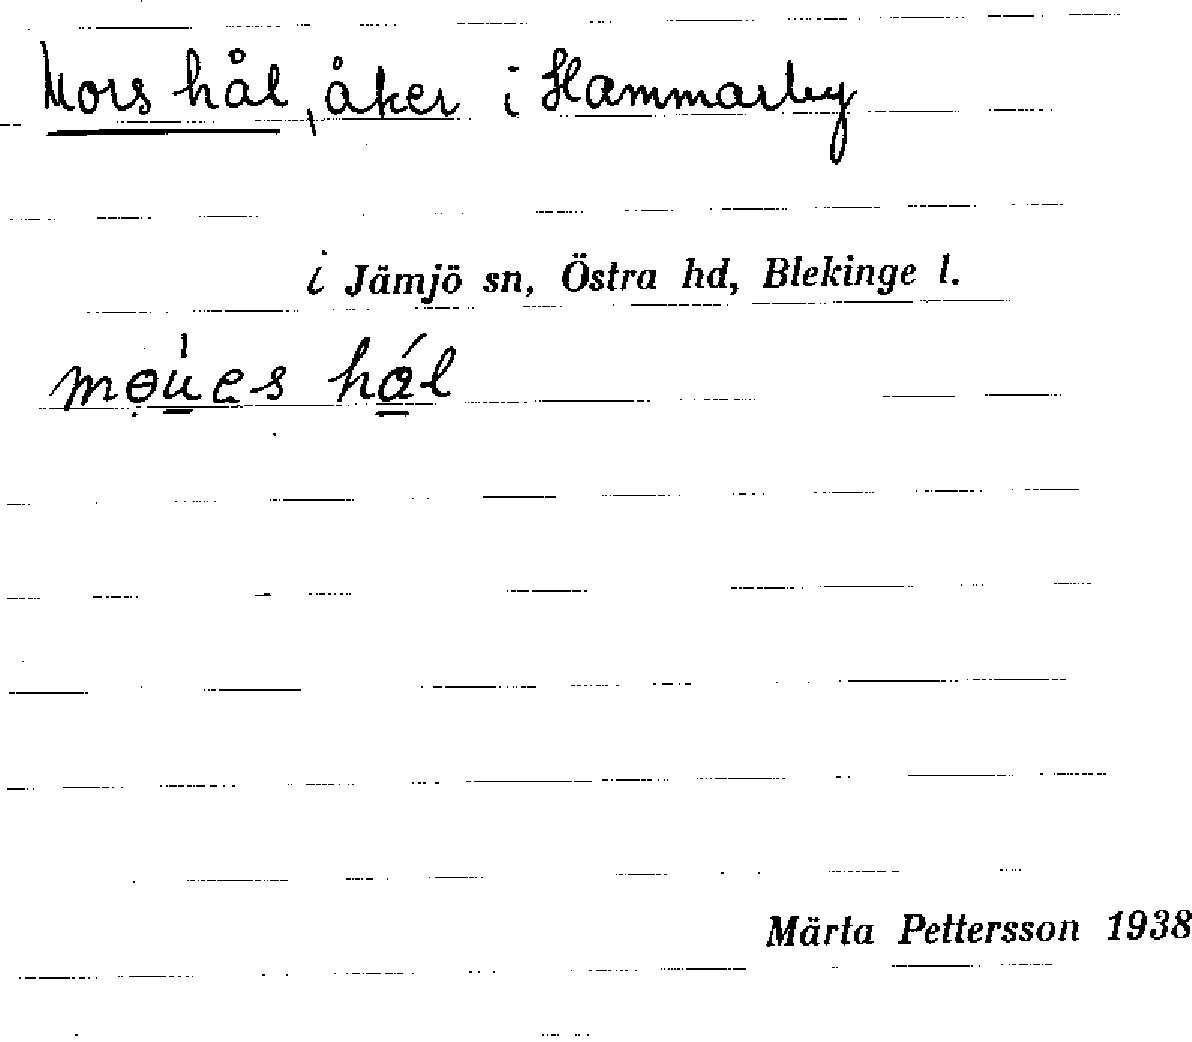 Mors hål, åker i Hammarby
i Jämjö sn, Östra hd, Blekinge l.
mɵu̲es há̲l
Märta Pettersson 1938